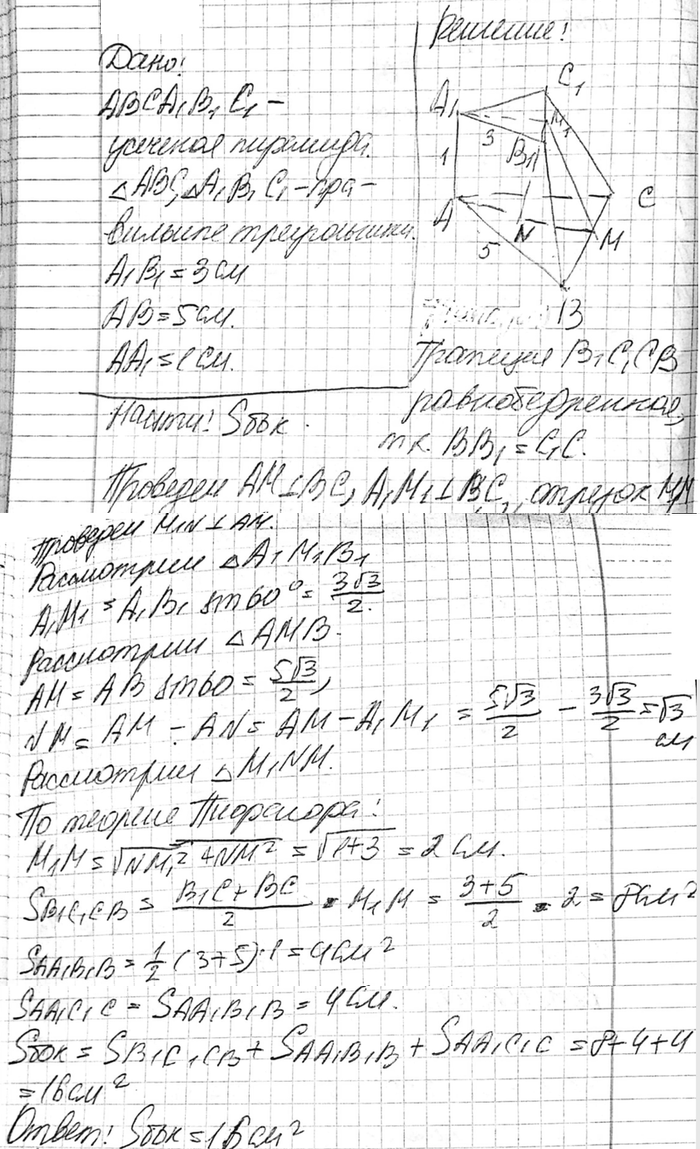 Дано!
ABCA₁B₁C₁ –
усеченая пирамида.
△ABC, △A₁B₁C₁ – пра-
вильные треугольники.
A₁B₁ = 3 см
AB = 5 см.
AA₁ = 1 см.
Найти! Sбок.
Решение!
C₁
A₁
M₁
3
B₁
1
A
C
N
M
5
B
Трапеция B₁C₁CB
равнобедренная,
т.к. BB₁ = C₁C.
Проведем AM ⊥ BC, A₁M₁ ⊥ B₁C₁, отрезок M₁M
Проведем M₁N ⊥ AM.
Рассмотрим △A₁M₁B₁
A₁M₁ = A₁B₁ sin 60° = 3√3/2.
Рассмотрим △AMB.
AM = AB sin 60 = 5√3/2,
NM = AM – AN = AM – A₁M₁ = 5√3/2 – 3√3/2 = √3 см
Рассмотрим △M₁NM.
По теореме Пифагора!
M₁M = √NM₁² + NM² = √1+3 = 2 см.
SB₁C₁CB = B₁C + BC/2 · M₁M = 3+5/2 · 2 = 8 см²
SAA₁B₁B = 1/2 (3+5)·1 = 4 см²
SAA₁C₁C = SAA₁B₁B = 4 см.
Sбок = SB₁C₁CB + SAA₁B₁B + SAA₁C₁C = 8+4+4
= 16 см²
Ответ! Sбок = 16 см²